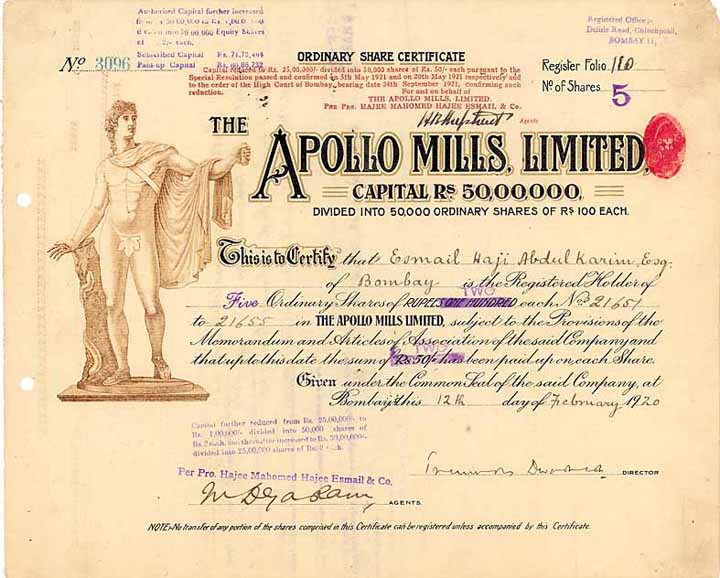 Authorised Capital further increased
from Rs.
Equity Shares
of each.
Subscribed Capital Rs. 71,72,464
Paid-up Capital Rs. 66,66,732
Registered Office:-
Delisle Road, Chinchpoali,
BOMBAY 11.
No 3096
ORDINARY SHARE CERTIFICATE
Capital reduced to Rs. 25,00,000/- divided into 50,000 shares of Rs. 50/- each pursuant to the
Special Resolution passed and confirmed in 5th May 1921 and on 20th May 1921 respectively and
to the order of the High Court of Bombay, bearing date 24th September 1921, confirming such
reduction.
For and on behalf of
THE APOLLO MILLS, LIMITED.
PER PRO. HAJEE MAHOMED HAJEE ESMAIL & Co.
Agents
Register Folio 180
No of Shares 5
THE
APOLLO MILLS, LIMITED,
CAPITAL RS 50,00,000,
DIVIDED INTO 50,000 ORDINARY SHARES OF RS 100 EACH.
This is to Certify that Esmail Haji Abdul Karim, Esq.
of Bombay is the Registered Holder of
TWO
Five Ordinary Shares of RUPEES ONE HUNDRED each Nos 21651
to 21655 in THE APOLLO MILLS LIMITED, subject to the Provisions of the
Memorandum and Articles of Association of the said Company and
TWO
that up to this date the sum of Rs 50/- has been paid upon each Share.
Given under the Common Seal of the said Company, at
Bombay this 12th day of February 1920
Capital further reduced from Rs. 25,00,000/- to
Rs. 1,00,000/- divided into 50,000 shares of
Rs. 2 each, and thereafter increased to Rs. 50,00,000/-
divided into 25,00,000 shares of Rs. 2 each.
DIRECTOR
Per Pro. Hajee Mahomed Hajee Esmail & Co.
AGENTS.
NOTE:-No transfer of any portion of the shares comprised in this Certificate can be registered unless accompanied by this Certificate.